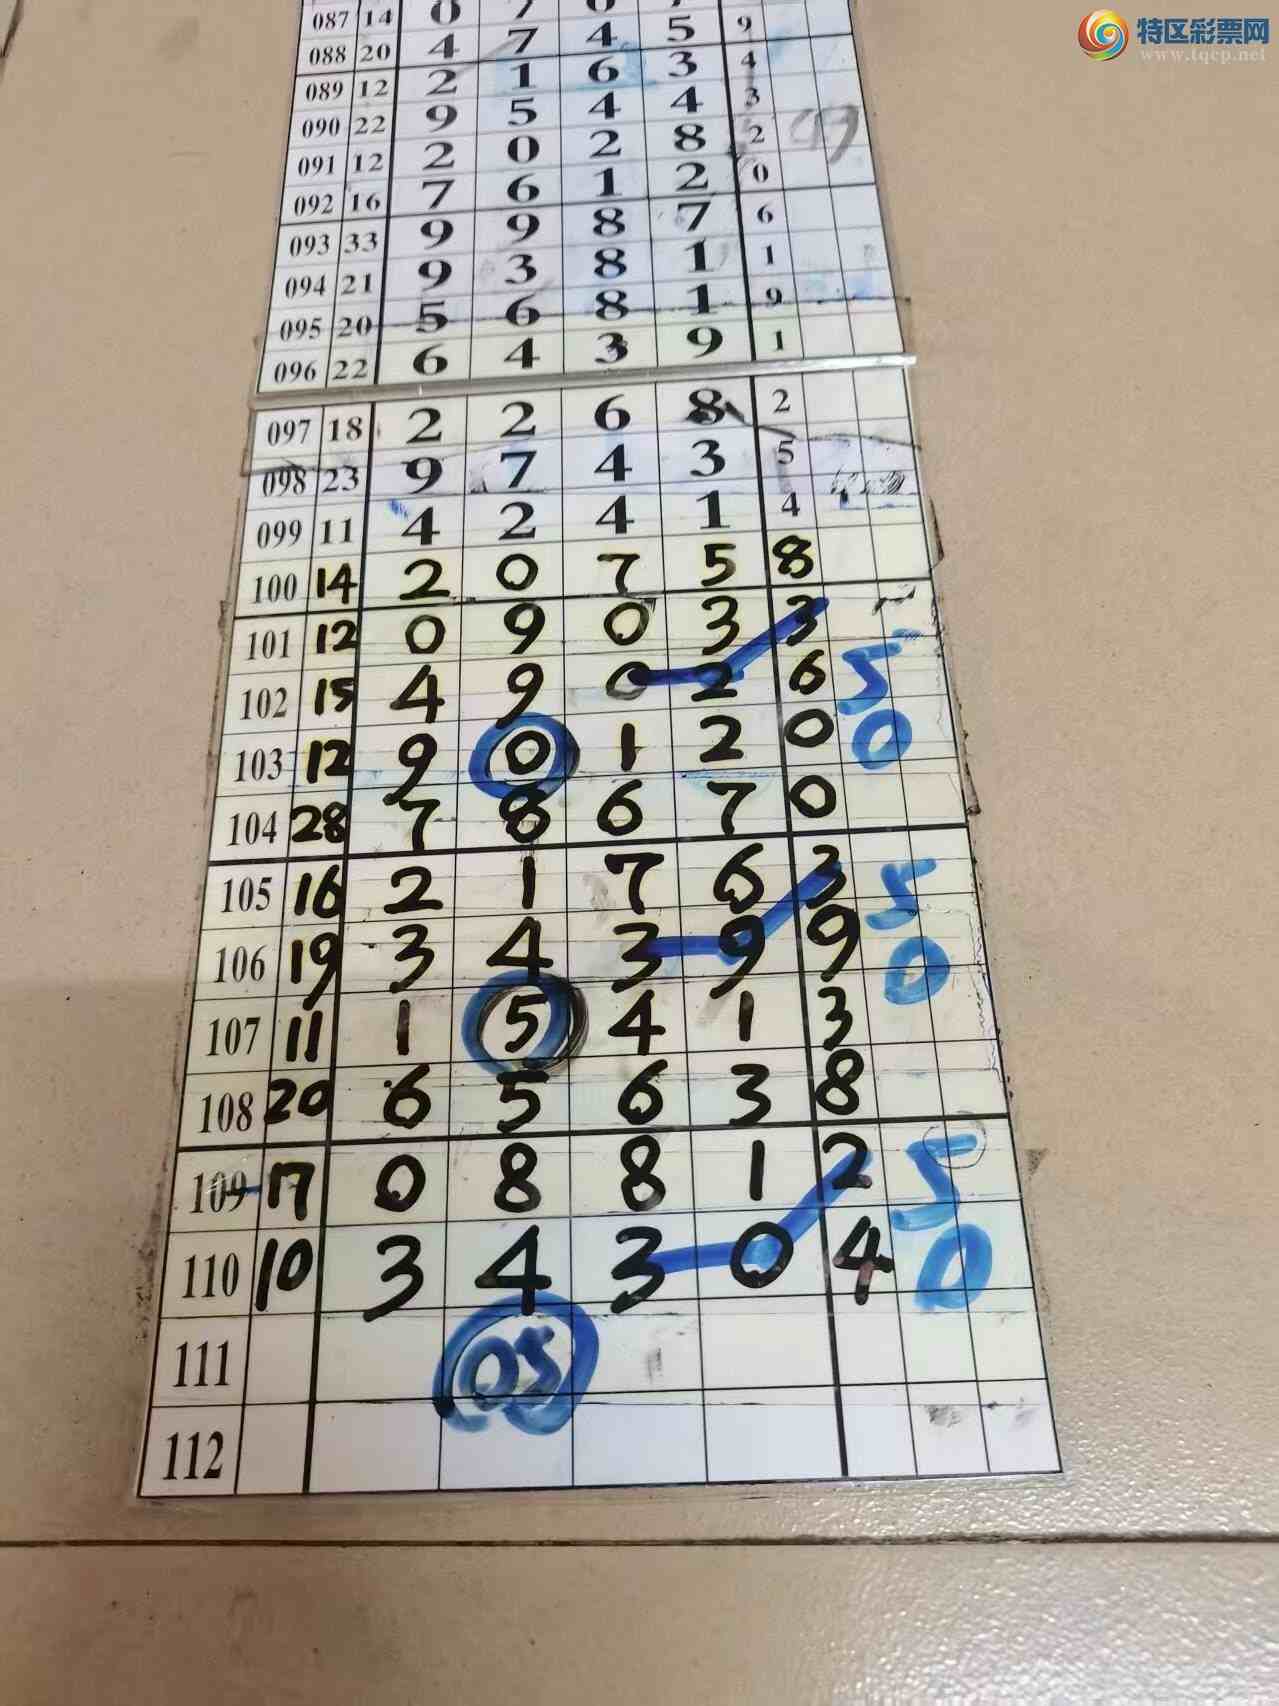 特区彩票网
www.tqcp.net
087 14 0 7 0 7
088 20 4 7 4 5 9
089 12 2 1 6 3 4
090 22 9 5 4 4 3
091 12 2 0 2 8 2
092 16 7 6 1 2 0
093 33 9 9 8 7 6
094 21 9 3 8 1 1
095 20 5 6 8 1 9
096 22 6 4 3 9 1
097 18 2 2 6 8 2
098 23 9 7 4 3 5
099 11 4 2 4 1 4
100 14 2 0 7 5 8
101 12 0 9 0 3 3
102 15 4 9 0 2 6 5
103 12 9 0 1 2 0 0
104 28 7 8 6 7 0
105 16 2 1 7 6 3 5
106 19 3 4 3 9 9 0
107 11 1 5 4 1 3
108 20 6 5 6 3 8
109 17 0 8 8 1 2 5
110 10 3 4 3 0 4 0
111 05
112